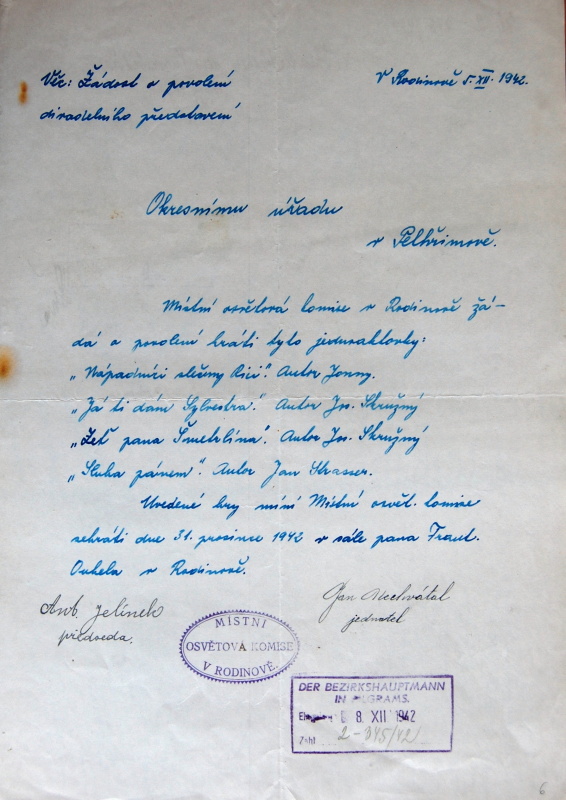 Věc: Žádost o povolení
divadelního představení
V Rodinově 5. XII. 1942.
Okresnímu úřadu
v Pelhřimově.
Místní osvětová komise v Rodinově žá-
dá o povolení hráti tyto jednoaktovky:
„Nápadníci slečny Rici". Autor Jonny.
„Já ti dám Sylvestra!" Autor Jos. Skružný
„Zeť pana Šmetrlína". Autor Jos. Skružný
„Sluha pánem". Autor Jan Strasser.
Uvedené hry míní Místní osvět. komise
sehráti dne 31. prosince 1942 v sále pana Frant.
v Rodinově.
Ant. Jelínek
předseda.
Jan Nechvátal
jednatel
MÍSTNÍ
OSVĚTOVÁ KOMISE
V RODINOVĚ.
DER BEZIRKSHAUPTMANN
IN PILGRAMS.
8. XII 1942
Zahl 2-345/42
6